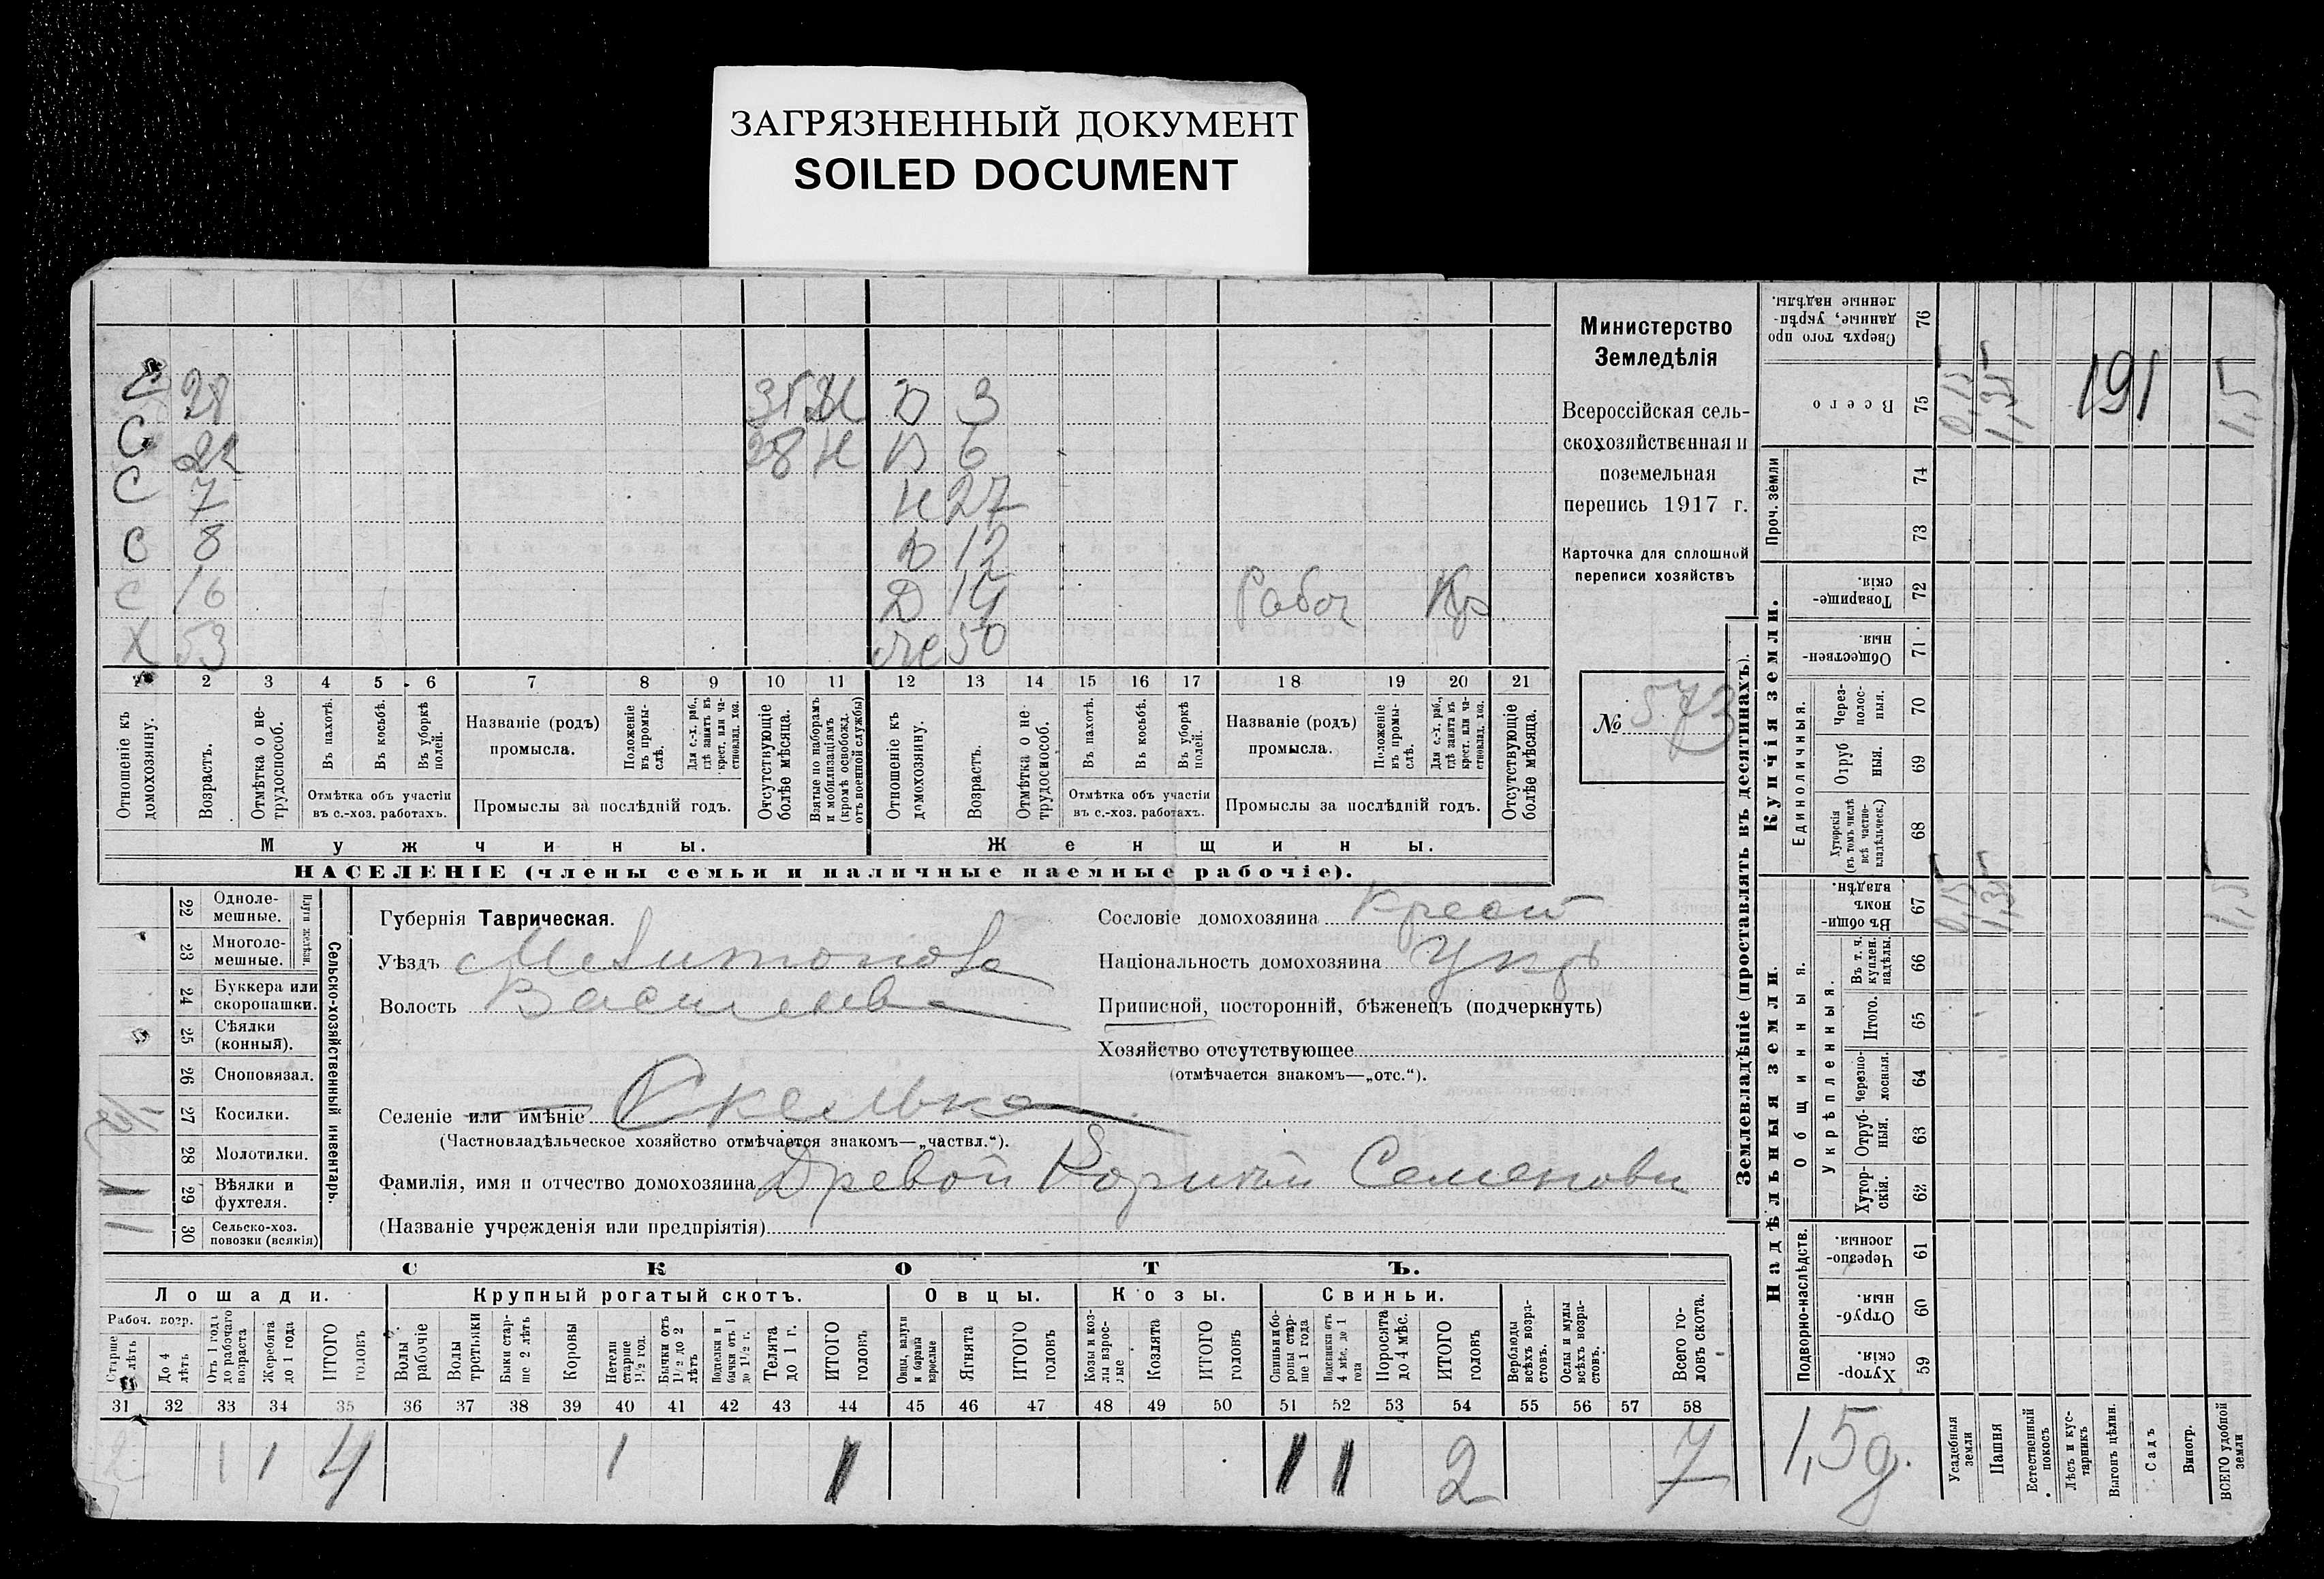 ЗАГРЯЗНЕННЫЙ ДОКУМЕНТ
SOILED DOCUMENT
С 28 Д 3
С 22 28 Н Д 6
С 7 Н 27
С 8 Д 12
С 16 Д 14 Рабоч Кр
Х 53 Же 50
1 2 3 4 5 6 7 8 9 10 11 12 13 14 15 16 17 18 19 20 21
Отношеніе къ домохозяину.
Возрастъ.
Отмѣтка о не-трудоспособ.
Въ пахотѣ.
Въ косьбѣ.
Въ уборкѣ полей.
Отмѣтка объ участіи
въ с.-хоз. работахъ.
Названіе (родъ)
промысла.
Положеніе въ промы-слѣ.
Для с.-х. раб., гдѣ занятъ въ крест. или ча-стновлад. хоз.
Промыслы за послѣдній годъ.
Отсутствующіе болѣе мѣсяца.
Взятые по наборамъ и мобилизаціямъ (кромѣ освобожд. отъ военной службы)
Отношеніе къ домохозяину.
Возрастъ.
Отмѣтка о не-трудоспособ.
Въ пахотѣ.
Въ косьбѣ.
Въ уборкѣ полей.
Отмѣтка объ участіи
въ с.-хоз. работахъ.
Названіе (родъ)
промысла.
Положеніе въ промы-слѣ.
Для с.-х. раб., гдѣ занята въ крест. или ча-стновлад. хоз.
Промыслы за послѣдній годъ.
Отсутствующіе болѣе мѣсяца.
Мужчины.
Женщины.
НАСЕЛЕНІЕ (члены семьи и наличные наемные рабочіе).
Министерство
Земледѣлія
Всероссійская сель-
скохозяйственная и
поземельная
перепись 1917 г.
Карточка для сплошной
переписи хозяйствъ
№ 573
22 Одноле-мешные.
23 Многоле-мешные.
Плуги желѣзн.
24 Буккера или скоропашки.
25 Сѣялки (конныя).
26 Сноповязал.
27 Косилки.
28 Молотилки.
29 Вѣялки и фухтеля.
30 Сельско-хоз. повозки (всякія)
Сельско-хозяйственный инвентарь.
Губернія Таврическая.
Уѣздъ Мелитопольс
Волость Васильев
Селеніе или имѣніе Скелька
(Частновладѣльческое хозяйство отмѣчается знакомъ—„частвл.“).
Фамилія, имя и отчество домохозяина Древой Корнѣй Семенови
(Названіе учрежденія или предпріятія)
Сословіе домохозяина крест
Національность домохозяина Укр
Приписной, посторонній, бѣженецъ (подчеркнуть)
Хозяйство отсутствующее
(отмѣчается знакомъ—„отс.“).
СКОТЪ.
Лошади.
Крупный рогатый скотъ.
Овцы.
Козы.
Свиньи.
Рабоч. возр.
Старше 4 лѣтъ
До 4 лѣтъ
Отъ 1 года до рабочаго возраста
Жеребята до 1 года
ИТОГО головъ
Волы рабочіе
Волы третьяки
Быки стар-ше 2 лѣтъ
Коровы
Нетели старше 1½ год.
Бычки отъ 1½ до 2 лѣтъ
Подтелки и бычки отъ 1 до 1½ г.
Телята до 1 г.
ИТОГО головъ
Овцы, валухи и бараны взрослые
Ягнята
ИТОГО головъ
Козы и коз-лы взрос-лые
Козлята
ИТОГО головъ
Свиньи и бо-ровы стар-ше 1 года
Подсвинки отъ 4 мѣс. до 1 года
Поросята до 4 мѣс.
ИТОГО головъ
Верблюды всѣхъ возра-стовъ.
Ослы и мулы всѣхъ возра-стовъ.
Всего го-ловъ скота.
31 32 33 34 35 36 37 38 39 40 41 42 43 44 45 46 47 48 49 50 51 52 53 54 55 56 57 58
2 1 1 4 1 1 1 1 2 7
Землевладѣніе (проставлять въ десятинахъ).
Купчія земли.
Надѣльныя земли.
Сверхъ того про-данные, укрѣп-ленные надѣлы. 76
Всего 75 0,15 1,35 191 1,5
Проч. земли 74
73
Товарище-скія. 72
Обществен-ныя. 71
Единоличныя.
Через-полос-ныя. 70
Отруб-ныя. 69
Хуторскія (въ томъ числѣ всѣ частно-владѣльческ.) 68
Общинныя.
Въ общин-номъ владѣн. 67 0,15 1,35 1,5
Укрѣпленныя.
Въ т. ч. куплен. надѣлы. 66
Итого. 65
Черезпо-лосныя. 64
Отруб-ныя. 63
Хутор-скія. 62
Подворно-наслѣдств.
Черезпо-лосныя. 61
Отруб-ныя. 60
Хутор-скія. 59
1,5д.
Усадебныя земли
Пашня
Естественный покосъ
Лѣсъ и кус-тарникъ
Выгонъ цѣлин.
Садъ
Виногр.
ВСЕГО удобной земли